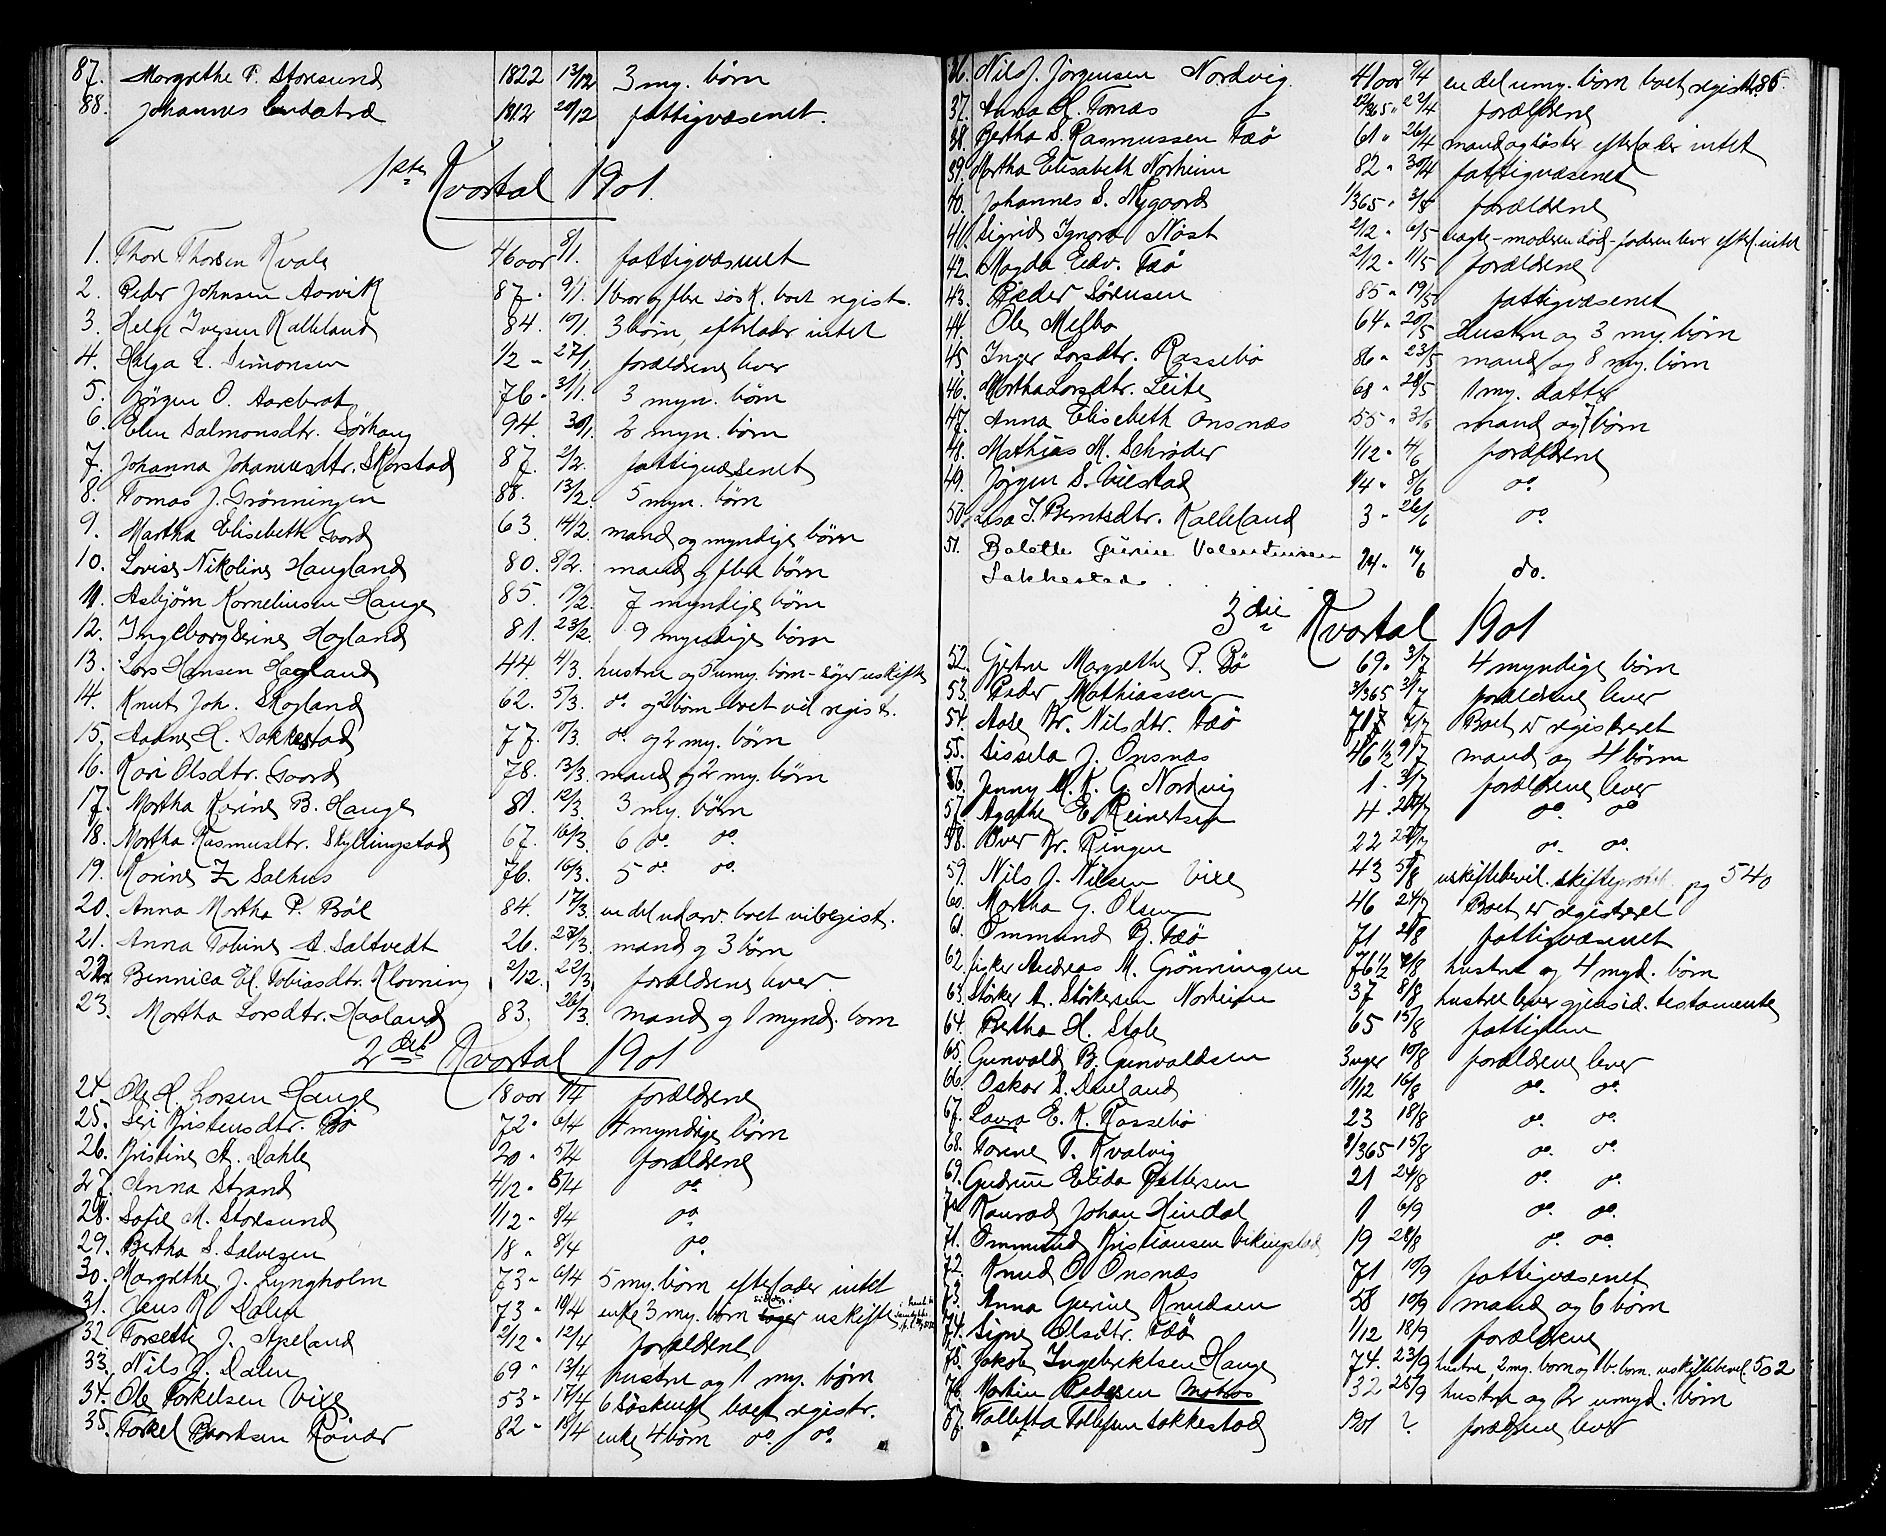 87. Margrethe P. Storesund 1822 13/12 3 my. børn
88. Johannes 1812 20/12 fattigvæsenet.
1ste Kvartal 1901.
1. Thore Thorsen Kvale 46 aar 8/1. fattigvæsenet
2. Peder Johnsen Aarvik 87. 9/1. 1 bror og flere søsk. boet regist.
3. Helge Iversen Kalleland 84. 19/1. 3 børn, efterlader intet
4. Helga L. Simonsen 1/2 " 27/1. forældrene lever
5. Jørgen O. Aarebrot 76. 31/1. 3 myn. børn
6. Elen Salmonsdtr. Sørhaug 94. 30/1. 2 myn. børn
7. Johanna Johannesdtr. Skorstad 87. 2/2. fattigvæsenet
8. Tomas J. Grønningen 88. 13/2. 5 myn. børn
9. Martha Elisebeth Gaard 63. 14/2. mand og myndige børn
10. Lovise Nikoline Haugland 80. 8/2. mand og flere børn
11. Asbjørn Korneliussen Hauge 85. 19/2. 7 myndige børn
12. Ingeborg Serine Hogland 81. 23/2. 9 myndige børn
13. Lars Hansen Hagland 44. 4/3. hustru og 5 umy. børn - søger uskifte
14. Knut Joh. Skogland 62. 5/3. do og 2 børn - boet vil regist.
15. Aadne H. Sakkestad 77. 10/3. do. og 2 my. børn
16. Kari Olsdtr. Gaard 78. 13/3. mand og 2 my. børn
17. Martha Karine B. Hauge 81. 12/3. 3 my. børn
18. Martha Rasmusdtr. Skyllingstad 67. 16/3. 6 do. do.
19. Karine Z Salhus 76. 16/3. 5 do. do.
20. Anna Martha P. Bøe 84. 17/3. en del udarv. boet vil regist.
21. Anna Tobine A. Saltvedt 26. 27/3. mand og 3 børn
22. Bennica El. Tobiasdtr. Kloning 2/12. 22/3. forældrene lever.
23. Martha Larsdtr. Haaland 83. 26/3. mand og 1 mynd. barn
2det Kvartal 1901
24. Ole H. Larsen Hauge 18 aar 1/4 forældrene
25. Siri Kristensdtr. Bø 72 " 6/4 4 myndige børn
26. Kristine A. Dahle 20 " 5/4 forældrene
27. Anna Strand 4/12 " 8/4 do.
28. Sofie M. Storesund 1/12 " 8/4 do.
29. Bertha S. Salvesen 18 " 8/4 do.
30. Margrethe J. Lyngholm 73 " 6/4 5 my. børn efterlader intet
31. Jens K. Dalen 73 " 10/4 enke 3 my. børn søger uskifte
32. Torsette J. Apeland 2/12 " 12/4 forældrene
33. Nils J. Dalen 69 " 13/4 hustru og 1 my. børn
34. Ole Torkelsen Vixe 53 " 17/4 6 søskende boet registr.
35. Torkel Baardsen Røvær 82 " 18/4 enke 4 børn do. do.
36. Nils J. Jørgensen Nordvig. 41 aar 9/4 en del umy. børn boet registr. 86
37. Anna H. Tomas 12/365 " 22/4 forældrene
38. Bertha S. Rasmussen Fæø 61 " 26/4 mand og søster efterlader intet
39. Martha Elisabeth Norheim 82 " 30/4 fattigvæsenet
40. Johannes S. Nygaard 1/365 " 3/5 forældrene
41. Sigrid Ignora Nøst 2/12 " 6/5 uægte - moderen død - faderen lever efterl. intet
42. Magda Edv. Fæø 2/12 " 11/5 forældrene
43. Peder Sørensen 85 " 19/5 fattigvæsenet
44. Ole Melbo 64 " 20/5 hustru og 3 my. børn
45. Inger Larsdtr. Rossebø 86 " 23/5 mand og 8 my. børn
46. Martha Larsdtr. Leite 68 " 28/5 1 my. datter
47. Anna Elisebeth Onsnæs 55 " 3/6 mand og 7 børn
48. Mathias M. Schrøder 1/12 " 4/6 forældrene
49. Jørgen S. Vilstad 1/4 " 8/6 do.
50. Lasa I. Berntsdtr. Kalleland 3 " 26/6 do.
51. Balette Gurine Valentinsen Sakkestad 24 " 16/6 do.
3die Kvartal 1901
52. Gjertru Margrethe P. Bø 69 " 3/7 4 myndige børn
53. Peder Mathiassen 3/365 3/7 forældrene lever
54. Aase Kr. Nilsdtr. Fæø 71 4/7 Boet er registreret
55. Sissela J. Onsnæs 46 1/2 9/7 mand og 4 børn
56. Jenny M. K. G. Nordvig 1. 3/7 forældrene lever
57. Agathe E Reinertsen 4. do. do.
58. Iver Kr. Ringen 22 do. do.
59. Nils J. Nilsen Vixe 43 5/8 uskiftebevil. skifteprotok. pg 540
60. Martha G. Olsen 46 24/7 Boet er registreret
61. Ommund B. Fæø 71 2/8 fattigvæsenet
62. fisker Andreas M. Grønningen 76 1/2 4/8 hustru og 4 mynd. børn
63. Størker A. Størkersen Norheim 37 8/8 hustru lever gjensid. testamente
64. Bertha H. Stole 65 15/8 fattiglem
65. Gunvald B. Gunvaldsen 3 uger 10/8 forældrene lever
66. Oskar S. Aveland 1/12 16/8 do. do.
67. Laura E. K. Rossebø 23 18/8 do. do.
68. Torine T. Kvalvig 8/365 15/8 do. do.
69. Gudrun Elida Pettersen 21 24/8 do. do.
70. Konrad Johan Hindal 1 6/9 do. do.
71. Ommund Kristiansen Vikingstad 19 28/8 do. do.
72. Knud O. Onsnæs 71 10/9 fattigvæsenet
73. Anna Gurine Knudsen 58 10/9 mand og 6 børn
74. Signe Olsdtr. Fæø 1/12 18/9 forældrene
75. Jakob Ingebrektsen Hauge 74. 23/9 hustru, 2 my. børn og 1 b. barn. uskiftebevil. 502
76. Martin Pedersen Matros 32 25/9 hustru og 2 umynd. børn
87. Tollefta Tollefsen Sakkestad 1901 ? forældrene lever